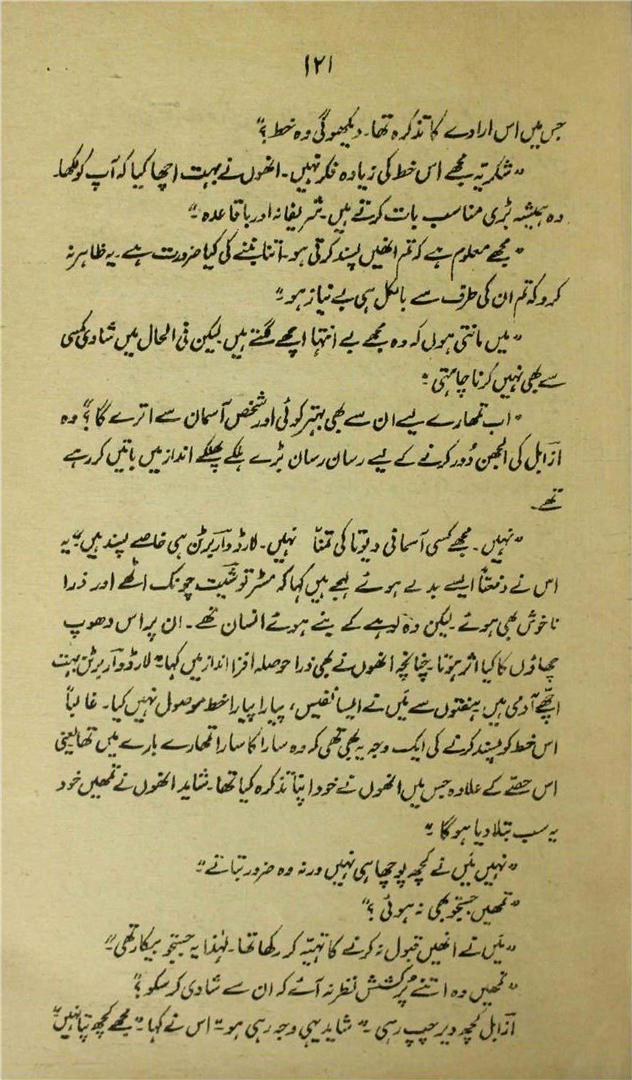 ۱۲۱
جس میں اس ارادے کا تذکرہ تھا۔ دیکھوگی وہ خط؟"
"شکریہ مجھے اس خط کی زیادہ فکر نہیں۔ انھوں نے بہت اچھا کیا کہ آپ کو لکھا۔
وہ ہمیشہ بڑی مناسب بات کرتے ہیں۔ شریفانہ اور باقاعدہ۔"
"مجھے معلوم ہے کہ تم انھیں پسند کرتی ہو۔ اتنا بننے کی کیا ضرورت ہے۔ یہ ظاہر نہ
کرو کہ تم ان کی طرف سے بالکل ہی بے نیاز ہو۔"
"میں مانتی ہوں کہ وہ مجھے بے انتہا اچھے لگتے ہیں لیکن فی الحال میں شادی کسی
سے بھی نہیں کرنا چاہتی۔"
"اب تمھارے لیے ان سے بھی بہتر کوئی اور شخص آسمان سے اترے گا؟" وہ
ازابل کی الجھن دُور کرنے کے لیے رسان رسان بڑے ہلکے پھلکے انداز میں باتیں کر رہے
تھے۔
"نہیں۔ مجھے کسی آسمانی دیوتا کی تمنّا نہیں۔ لارڈ واربرٹن ہی خاصے پسند ہیں۔" یہ
اس نے دفعتاً ایسے بدلے ہوئے لہجے میں کہا کہ مسٹر توشیت چونک اٹھے اور ذرا
ناخوش بھی ہوئے۔ لیکن وہ لوہے کے بنے ہوئے انسان تھے۔ ان پر اس دھوپ
چھاؤں کا کیا اثر ہوتا چنانچہ انھوں نے بھی ذرا حوصلہ افزا انداز میں کہا۔ "لارڈ واربرٹن بہت
اچھے آدمی ہیں ہفتوں سے میَں نے ایسا نفیس، پیارا پیارا خط موصول نہیں کیا۔ غالباً
اس خط کو پسند کرنے کی ایک وجہ یہ بھی تھی کہ وہ سارا کا سارا تمھارے بارے میں تھا یعنی
اس حصّے کے علاوہ جس میں انھوں نے خود اپنا تذکرہ کیا تھا۔ شاید انھوں نے تمھیں خود
یہ سب بتلا دیا ہوگا۔"
"نہیں میَں نے کچھ پوچھا ہی نہیں ورنہ وہ ضرور بتاتے۔"
"تمھیں جستجو بھی نہ ہوئی؟"
"میَں نے انھیں قبول نہ کرنے کا تہیّہ کر رکھا تھا۔ لہٰذا یہ جستجو بیکار تھی۔"
"تمھیں وہ اتنے پُرکشش نظر نہ آئے کہ ان سے شادی کر سکو؟"
ازابل کچھ دیر چپ رہی۔ "شاید یہی وجہ رہی ہو۔" اس نے کہا۔ "مجھے کچھ پتا نہیں"